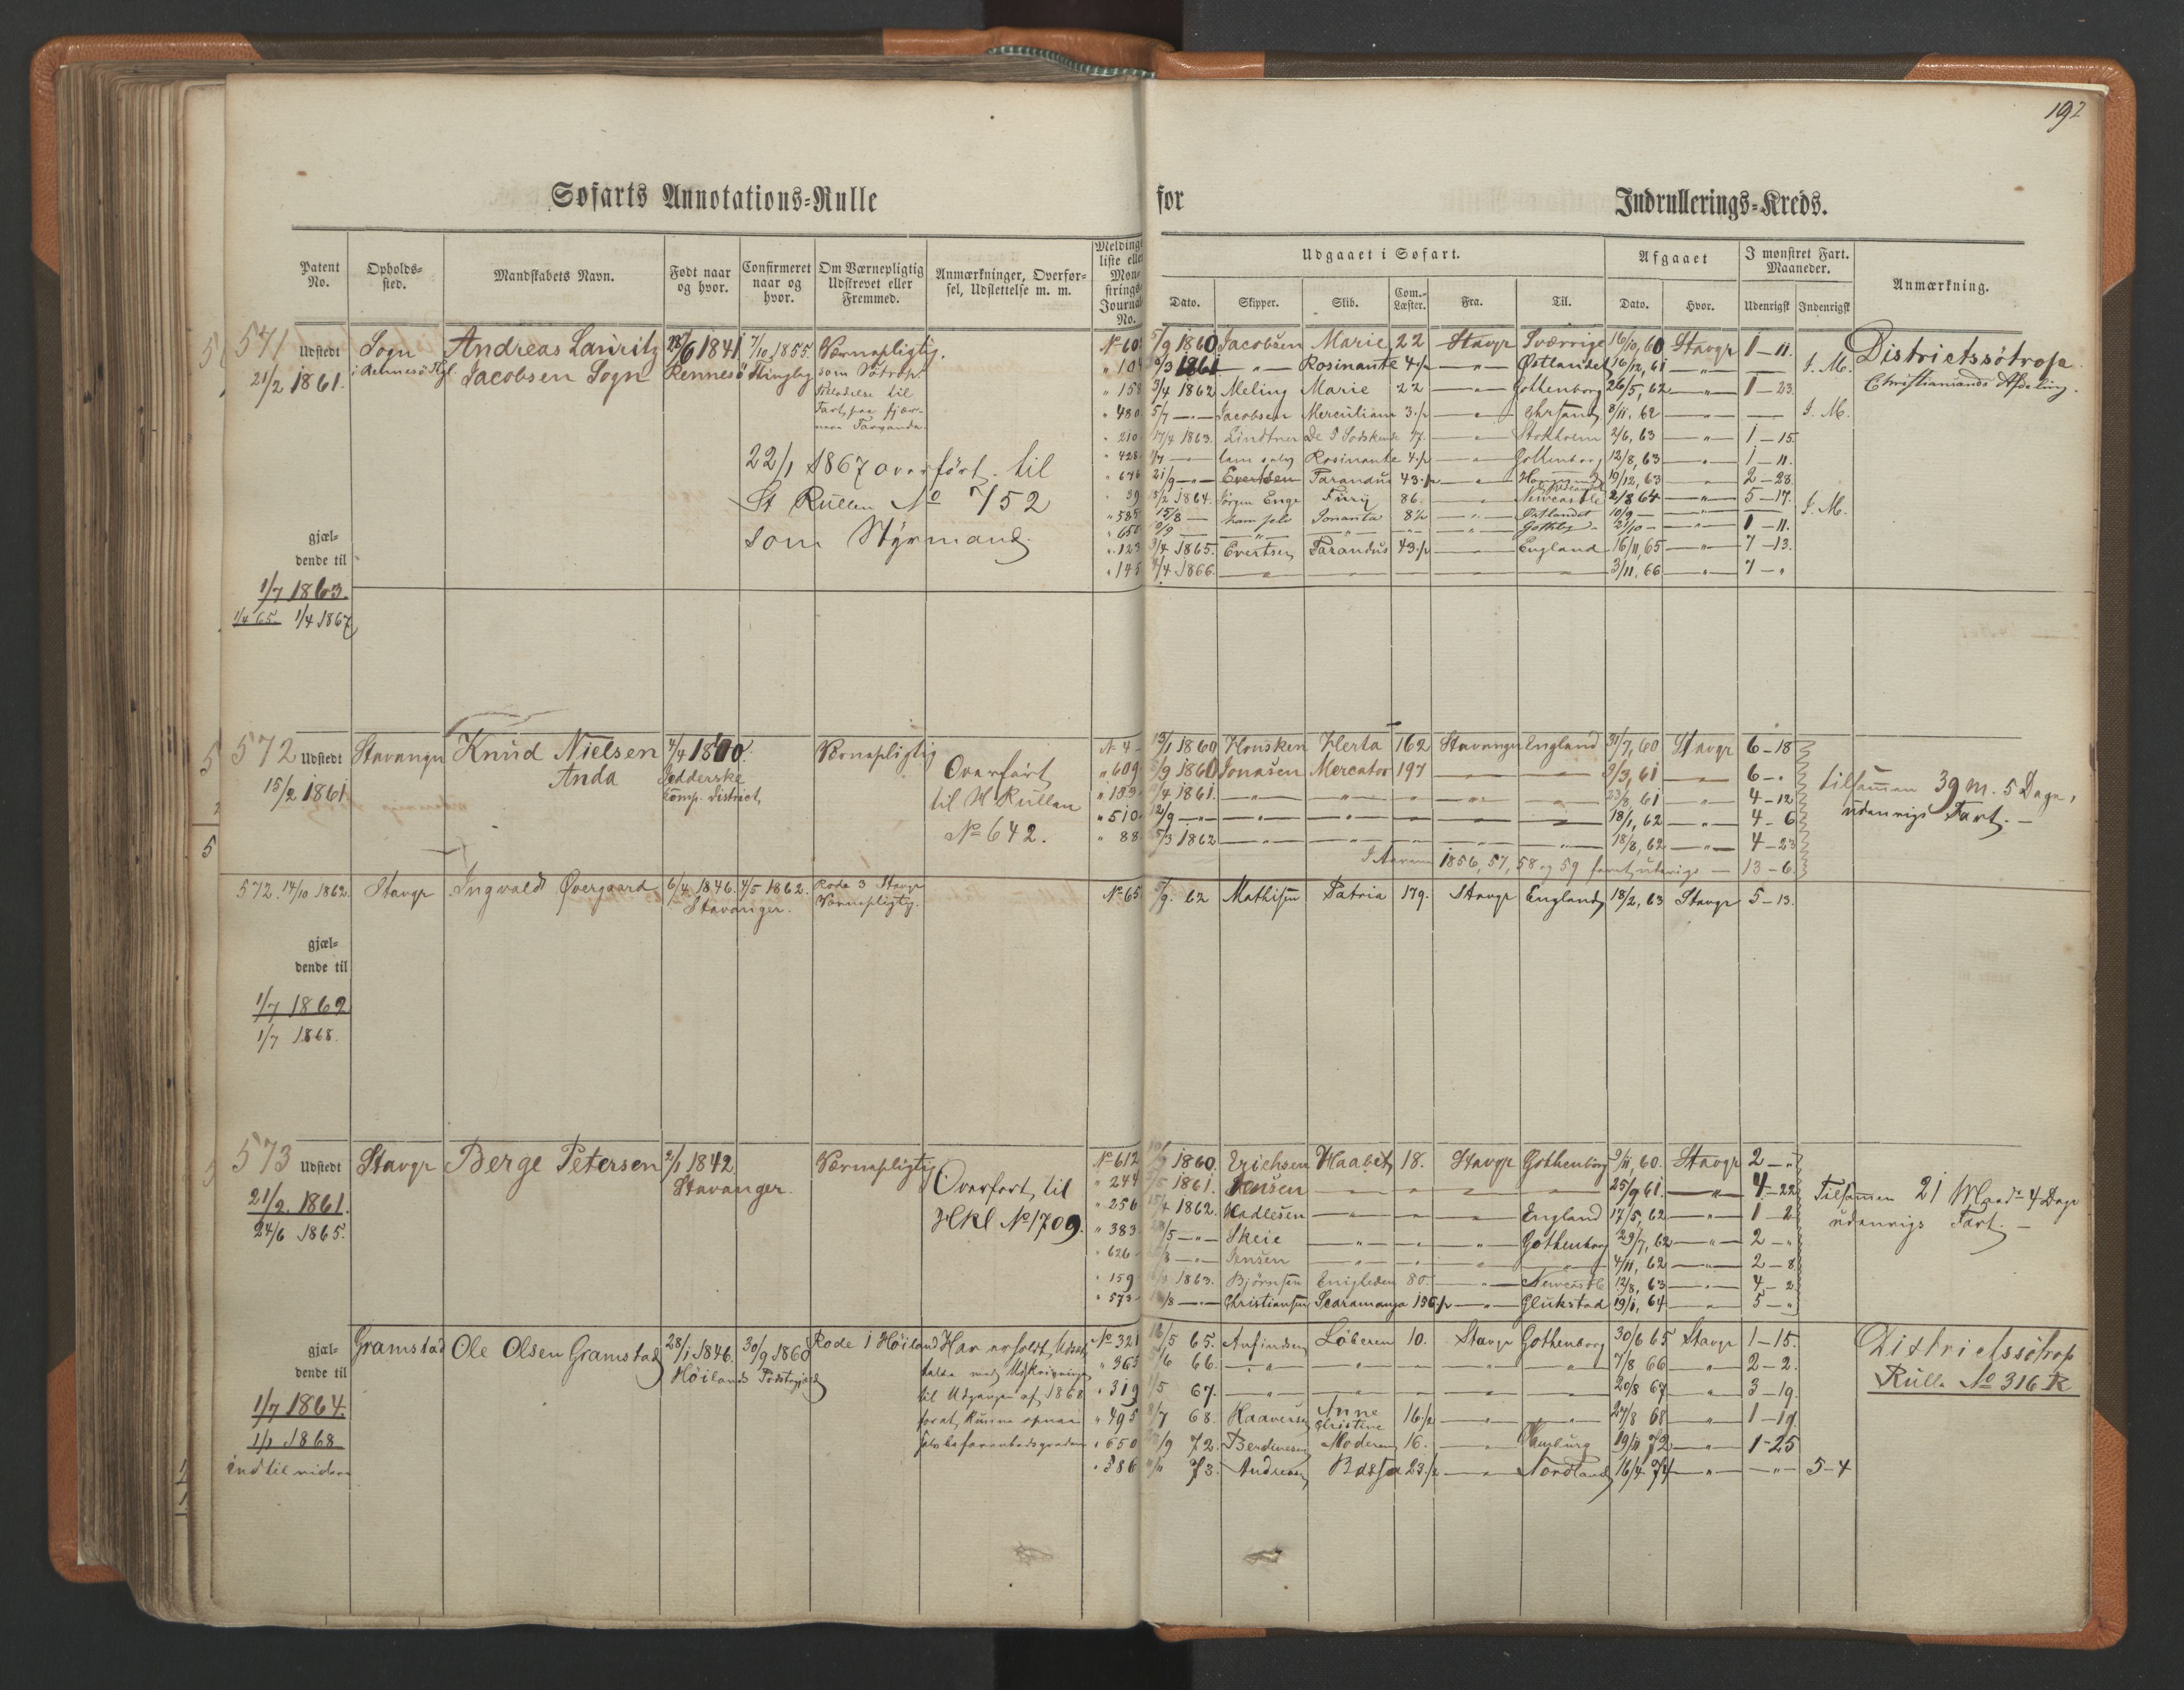 192
Søfarts Annotations-Rulle for Indrullerings-Kreds.
Patent No. Opholds-sted. Mandskabets Navn. Født naar og hvor. Confirmeret naar og hvor. Om Værnepligtig Udskrevet eller Fremmed. Anmærkninger, Overførsel, Udslettelse m. m. Meldings liste eller Mønstrings Journal No.
Udgaaet i Søfart. Afgaaet I mønstret Fart. Maaneder. Anmærkning.
Dato. Skipper. Skib. Com.-Læster. Fra. Til. Dato. Hvor. Udenrigsk Indenrigsk
571 Udstedt 21/2 1861.
Sogn
Andreas Lauritz
Jacobsen Sogn
28/6 1841
Rennesö
7/10 1855.
Værnepligtig.
22/1 1867 overført til
St Rullen No 752
som Styrmand.
gjæl-
dende til
1/7 1863.
1/4 65. 1/4 1867
5/9 1860 Jacobsen Marie 22 Stavgr Sverrige 16/10, 60 Stavgr 1 - 11.
1861 — " — Rosinante 4 1/2 — " — Østlandet 16/12, 61 — " — I. M.
" 158 3/4 1862 Meling Marie 22 — " — Gothenborg 26/5, 62 — " — 1 - 23.
" 480 5/7 — " — Jacobsen 3 1/2 — " — Chrsand 8/11, 62 — " — I. M.
" 210 17/4 1863. Lindtner 17. — " — Stokholm 2/6, 63 — " — 1 - 15.
" 428 Rosinante 4 1/2 — " — Gothenborg 12/8, 63 — " — 1 - 11.
" 646 21/9 — " — Evertsen Farandus 43 1/2 — " — 19/12, 63 — " — 2 - 28.
" 39 15/2 1864. Jörgen Enge Furij 86. — " — Newcastle 2/8 64 — " — 5 - 17.
" 585 15/8 — Jonanta 8 1/2 — " — Østlandet 10/9 — — " — I. M.
" 650 — " — Gothbg 21/10 — — " — 1 - 11.
" 123 3/4 1865. Evertsen Farandus 43 1/2 — " — England 16/11, 65 — " — 7 - 13.
" 145 1866. — " — 3/11, 66 — " — 7 - "
Districtssötrop.
Christiansands Afdeling.
572 Udstedt 15/2 1861
Stavanger
Knud Nielsen
Anda
4/4 1840.
district
Værnepligtig
Overført
til H. Rullen
No 642.
No 4 1860 Housken Herta 162 Stavanger England 31/7, 60 Stavgr 6 - 18
" 609 1860 Jonasen Mercator 197 — " — 9/3, 61 — " — 6 - "
" 189 1861. — " — 23/8, 61 — " — 4 - 12
" 510 12/9 — " — 18/1, 62 — " — 4 - 6
" 88 1862 — " — 18/8, 62 — " — 4 - 23
I Aarene 1856, 57, 58 og 59 faret udenrigs — 13 - 6.
tilsamen 39 M. 5 Dage,
udenrigs Fart. —
572. 14/10 1862. Stavgr Ingvald Øvergaard 6/4 1846. Stavanger. 4/5 1862. Rode 3 Stavgr Værnepligtig.
No 65 62 Mathisen Patria 179. Stavgr England 18/2, 63 Stavgr 5 - 13.
gjæl-
dende til
1/7 1862
1/7 1868.
573 Udstedt
21/2. 1861.
24/6 1865.
Stavgr
Berge Petersen
2/1 1842
Stavanger.
Værnepligtig
Overført til
Hkl No 1709.
No 612 1860. Erichsen Haabet 18. Stavgr Gothenborg 9/11, 60. Stavgr 2 - "
" 244 1861. Jensen — " — 25/9 61. — " — 4 - 22
" 256 1862. Hadlesen — " — England 17/5, 62 — " — 1 - 2
" 383 — " — Skeie — " — Gothenborg 29/7, 62 — " — 2 - "
" 626 — " — Jensen — " — 4/11, 62 — " — 2 - 8
" 159 1863. Björnsen Enigheden 80. — " — Newcastle 12/8, 63 — " — 4 - 2
" 573 — " — Christiansen Scaramanga 196 1/2 — " — Glükstad 19/1, 64 — " — 5 - "
Tilsamen 21 Maad. 4 Dage
udenrigs Fart. —
gjæl-
dende til
1/7 1864.
1/1 1868
indtil videre
Gramstad Ole Olsen Gramstad 28/1 1846. Höiland 30/9 1860 Rode 1 Höiland
Har erholdt Udsæt-
telse med Udskrivningen
til Udgangen af 1868
for at kunne opnaa
No 321 16/5 65. Anfindsen Löberen 10. Stavgr Gothenborg 30/6 65 Stavgr 1 - 15.
" 363 66. — " — 7/8 66 — " — 2 - 2.
" 319 67. — " — 20/8 67 — " — 3 - 19.
" 495 8/7 68. Haaversen Anne Christine 16 1/2 — " — 27/8 68 — " — 1 - 19.
" 650 72. Berentsen Moderen 16. — " — Hamburg 19/11 72 — " — 1 - 25
" 886 73. Andreasen 23 1/2 — " — Nordland 16/4 74 — " — — " — 5 - 4
Districtssötrop
Rulle No 316 R